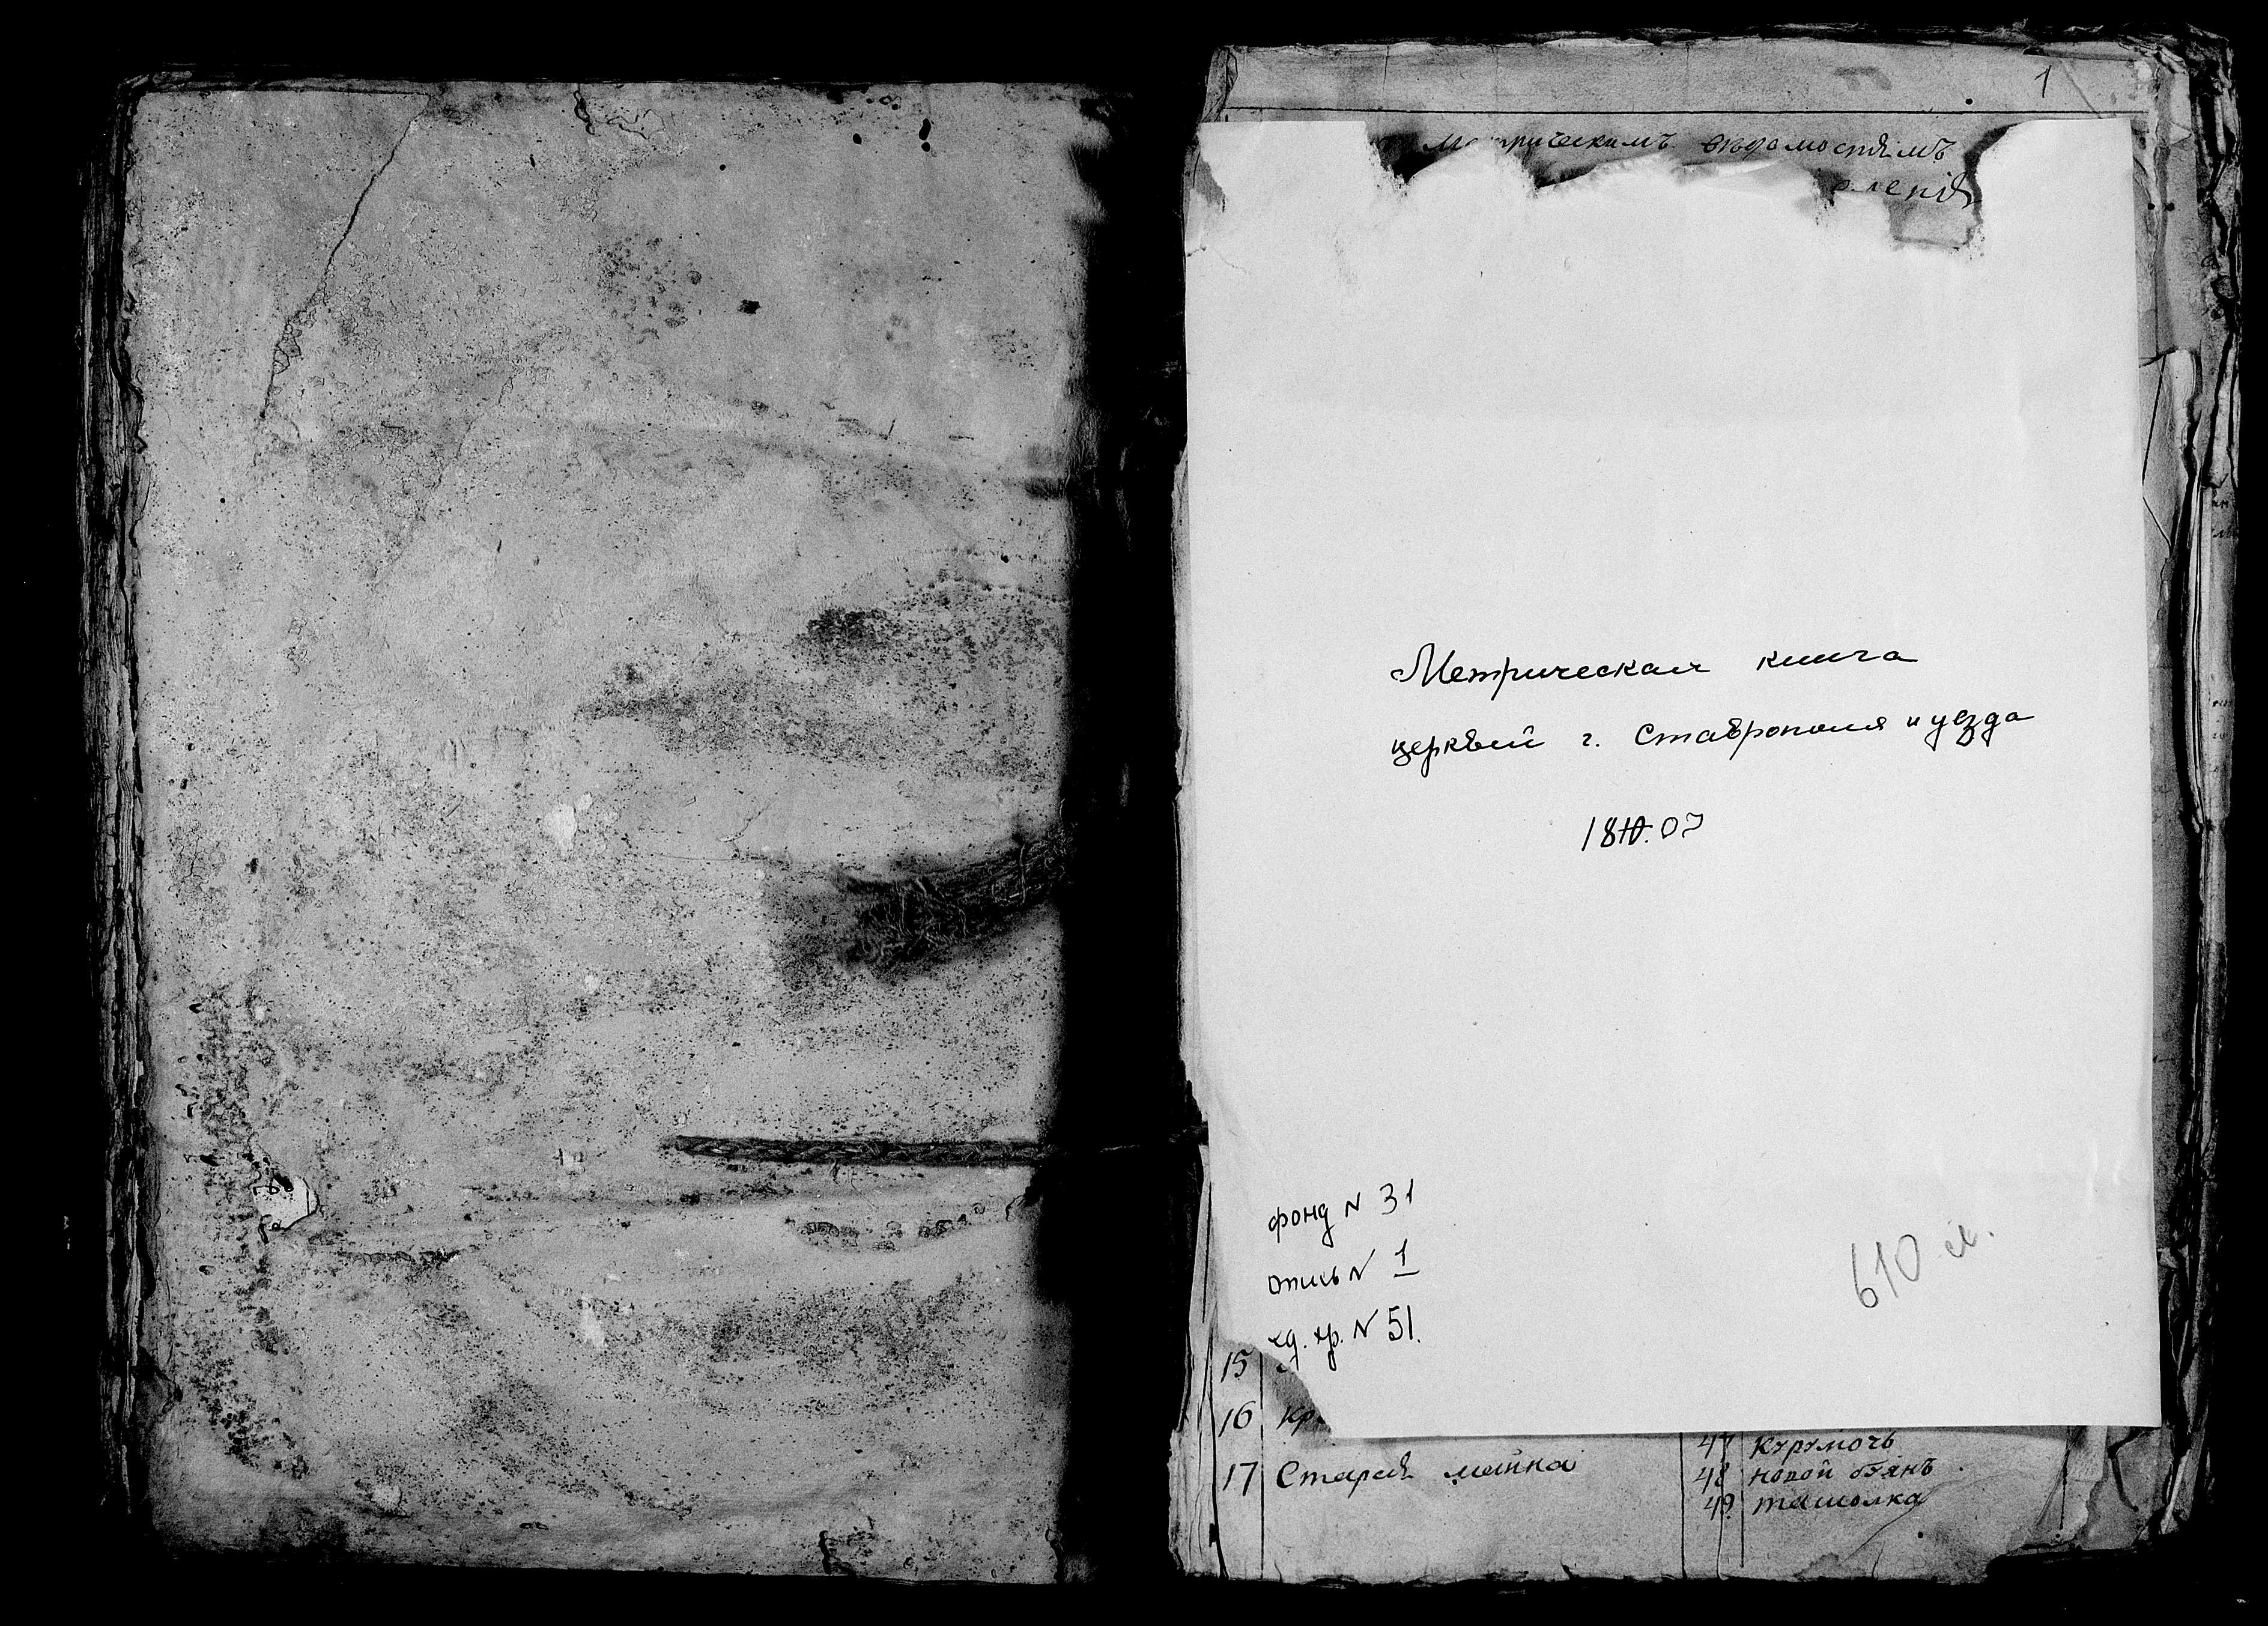 1
Метрическимъ вѣдомостямъ
Метрическая книга
церквей г. Ставрополя и уезда
1810.07
фонд N 31
опись N 1
ед. хр. N 51.
610 л.
15
16 Кр
17 Старая майка
47 Курумочь
48 новой буянъ
49 ташолка